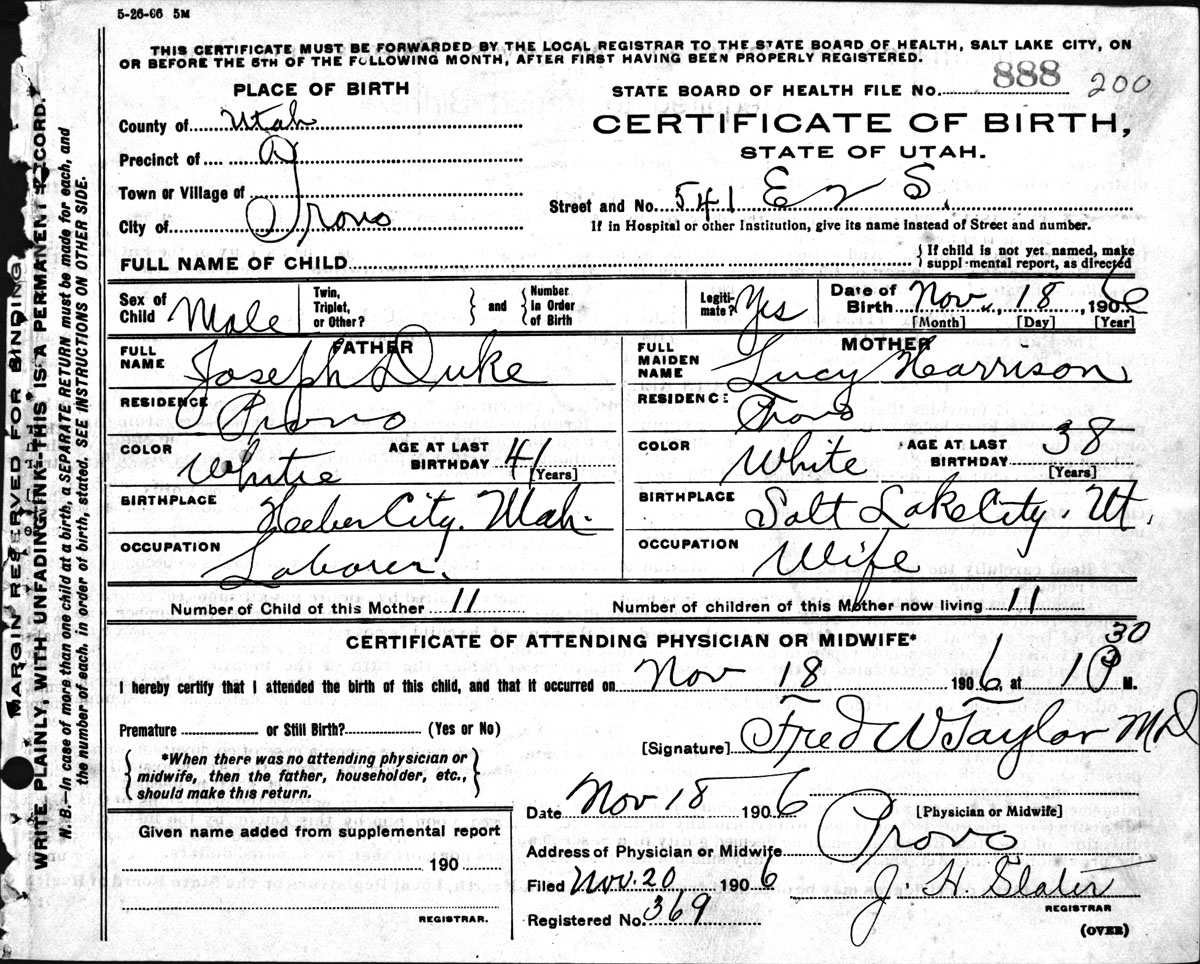 5-26-06 5M
THIS CERTIFICATE MUST BE FORWARDED BY THE LOCAL REGISTRAR TO THE STATE BOARD OF HEALTH, SALT LAKE CITY, ON
OR BEFORE THE 5TH OF THE FOLLOWING MONTH, AFTER FIRST HAVING BEEN PROPERLY REGISTERED.
PLACE OF BIRTH
County of Utah
Precinct of
Town or Village of
City of Provo
STATE BOARD OF HEALTH FILE No. 888 200
CERTIFICATE OF BIRTH,
STATE OF UTAH.
Street and No. 541 E S.
If in Hospital or other Institution, give its name instead of Street and number.
FULL NAME OF CHILD
{If child is not yet named, make
suppl·mental report, as directed
Sex of Child Male
Twin, Triplet, or Other? } and { Number in Order of Birth
Legiti-mate? Yes
Date of Birth Nov., 18, 1906
[Month] [Day] [Year]
FATHER
FULL NAME Joseph Duke
RESIDENCE Provo
COLOR White AGE AT LAST BIRTHDAY 41 [Years]
BIRTHPLACE Heber City. Utah.
OCCUPATION Laborer.
MOTHER
FULL MAIDEN NAME Lucy Harrison
RESIDENCE Provo
COLOR White AGE AT LAST BIRTHDAY 38 [Years]
BIRTHPLACE Salt Lake City, Ut,
OCCUPATION Wife
Number of Child of this Mother 11 Number of children of this Mother now living 11
CERTIFICATE OF ATTENDING PHYSICIAN OR MIDWIFE*
I hereby certify that I attended the birth of this child, and that it occurred on Nov 18 1906, at 1 30 P M.
Premature or Still Birth? (Yes or No)
{ *When there was no attending physician or
midwife, then the father, householder, etc.,
should make this return. }
[Signature] Fred W Taylor MD
[Physician or Midwife]
Date Nov 18 1906
Address of Physician or Midwife Provo
Filed Nov. 20, 1906 J. H. Slater
REGISTRAR
Registered No. 369
(OVER)
Given name added from supplemental report
190
REGISTRAR.
MARGIN RESERVED FOR BINDING
WRITE PLAINLY WITH UNFADING INK—THIS IS A PERMANENT RECORD.
N. B.—In case of more than one child at a birth, a SEPARATE RETURN must be made for each, and
the number of each, in order of birth, stated. SEE INSTRUCTIONS ON OTHER SIDE.